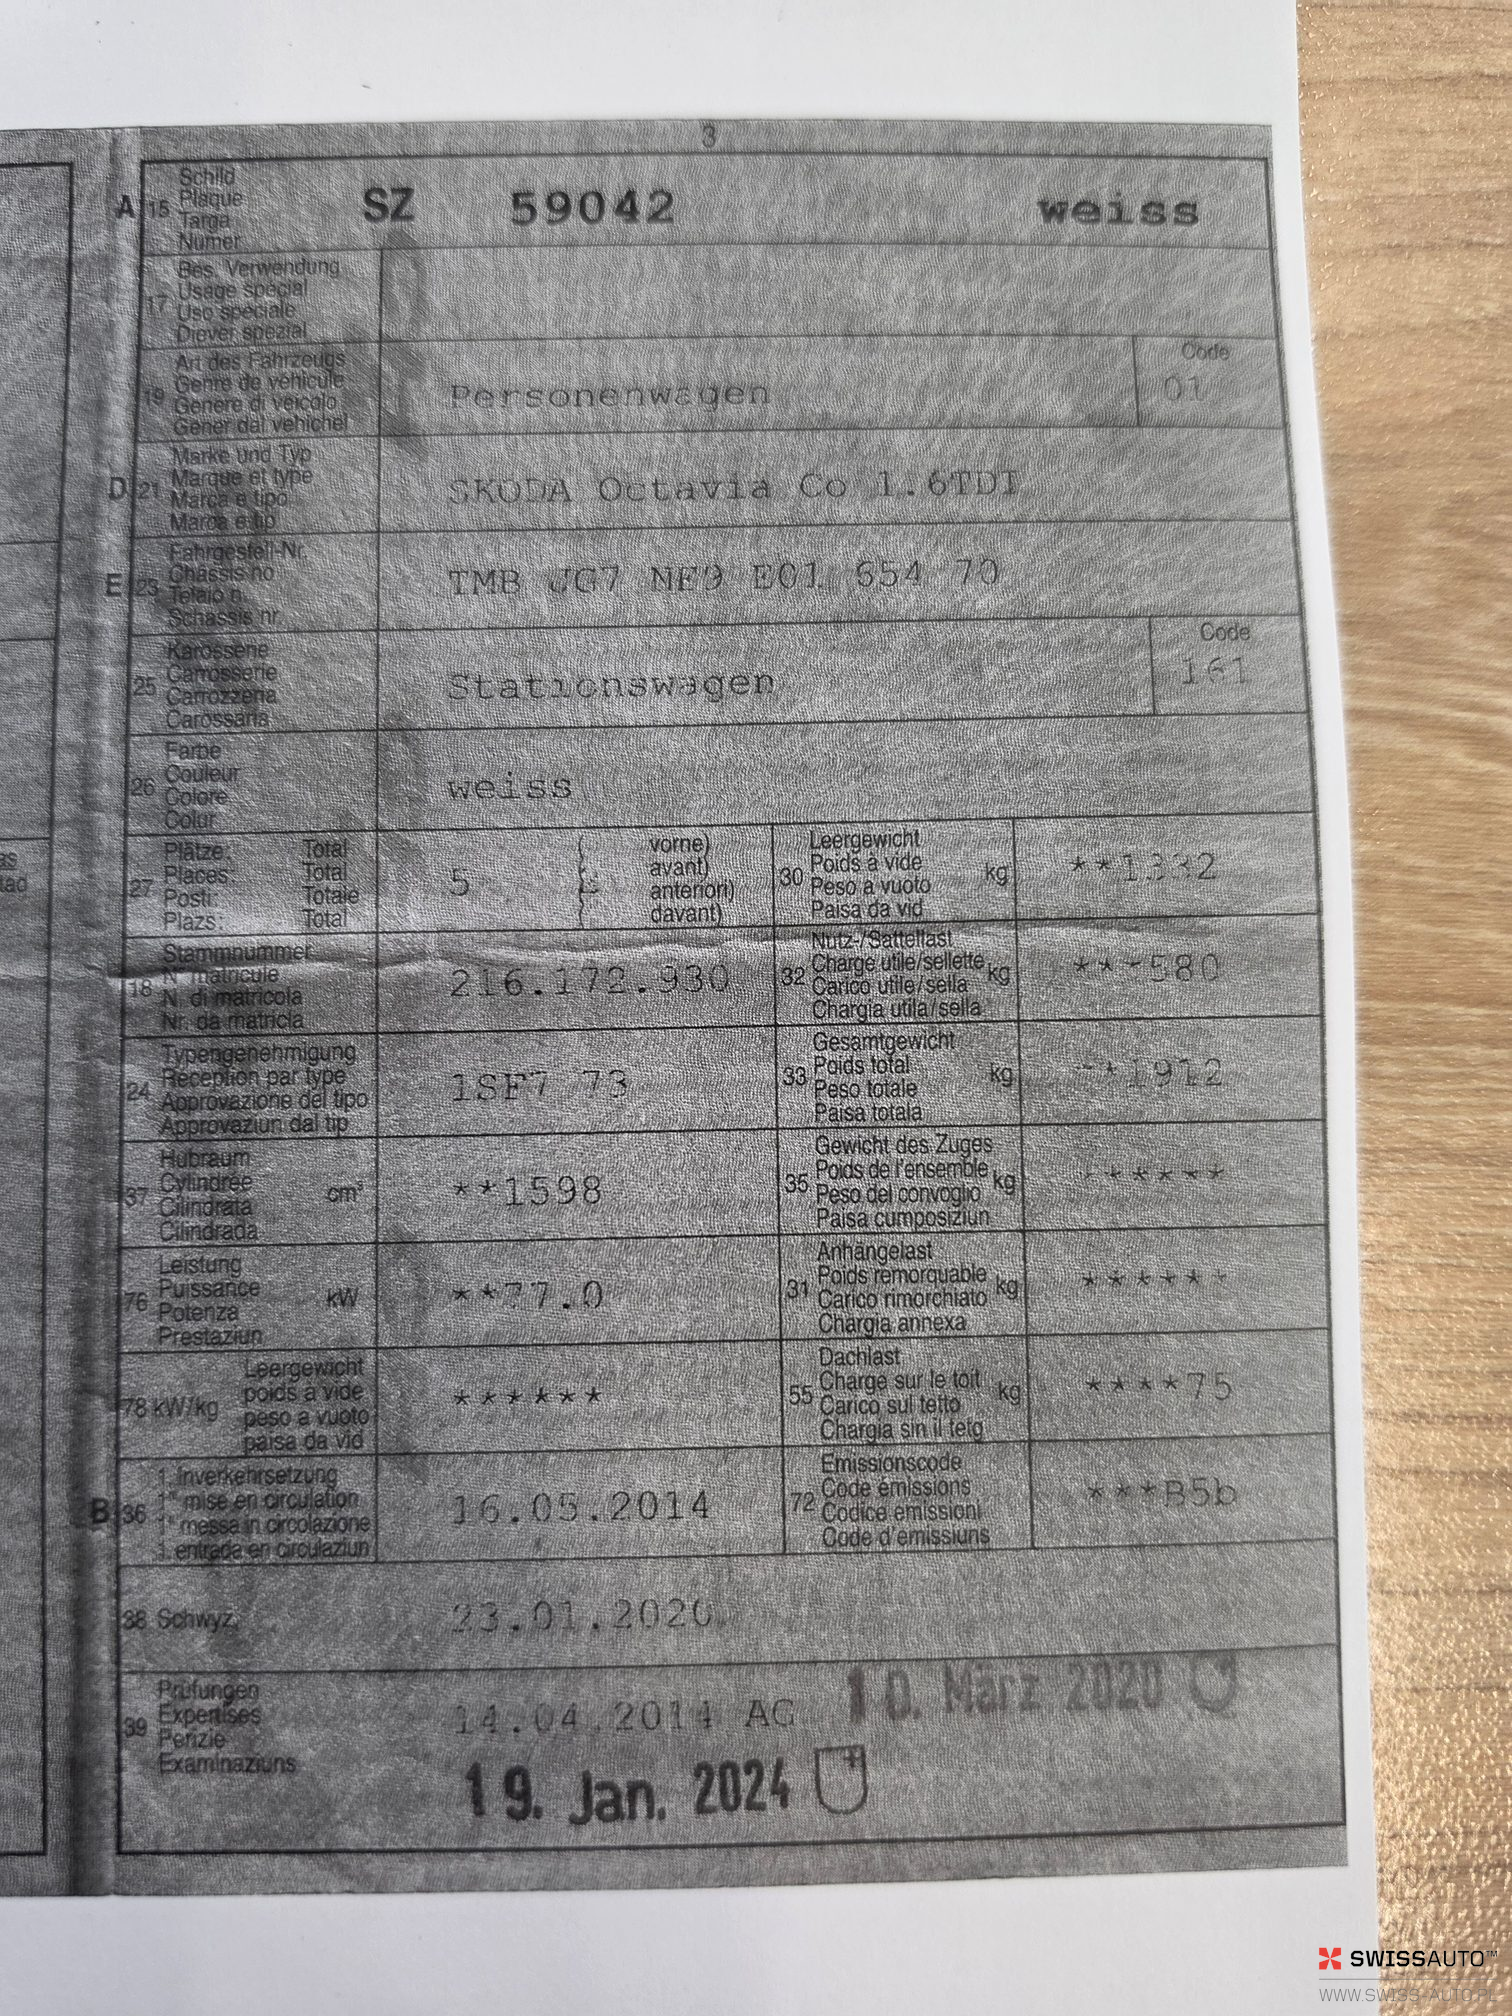 3
A 15 Schild
Plaque
Targa
Numer
SZ 59042 weiss
17 Bes. Verwendung
Usage spécial
Uso speciale
Diever spezial
19 Art des Fahrzeugs
Genre de véhicule
Genere di veicolo
Gener dal vehichel
Personenwagen
Code
01
D 21 Marke und Typ
Marque et type
Marca e tipo
Marca e tip
SKODA Octavia Co 1.6TDI
E 23 Fahrgestell-Nr.
Châssis no
Telaio n.
Schassis nr.
TMB JG7 NE9 E01 654 70
25 Karosserie
Carrosserie
Carrozzeria
Carossaria
Stationswagen
Code
161
26 Farbe
Couleur
Colore
Colur
weiss
27 Plätze: Total
Places: Total
Posti: Totale
Plazs: Total
5
vorne)
avant)
anteriori)
davant)
30 Leergewicht
Poids à vide
Peso a vuoto
Paisa da vid
kg
**1332
18 Stammnummer
N° matricule
N. di matricola
Nr. da matricla
216.172.930
32 Nutz-/Sattellast
Charge utile/sellette
Carico utile/sella
Chargia utila/sella
kg
***580
24 Typengenehmigung
Réception par type
Approvazione del tipo
Approvaziun dal tip
1SF7 73
33 Gesamtgewicht
Poids total
Peso totale
Paisa totala
kg
**1912
37 Hubraum
Cylindrée
Cilindrata
Cilindrada
cm³
**1598
35 Gewicht des Zuges
Poids de l'ensemble
Peso del convoglio
Paisa cumposiziun
kg
******
76 Leistung
Puissance
Potenza
Prestaziun
kW
**77.0
31 Anhängelast
Poids remorquable
Carico rimorchiato
Chargia annexa
kg
******
78 kW/kg
Leergewicht
poids à vide
peso a vuoto
paisa da vid
******
55 Dachlast
Charge sur le toit
Carico sul tetto
Chargia sin il tetg
kg
****75
B 36 1. Inverkehrsetzung
1re mise en circulation
1a messa in circolazione
1. entrada en circulaziun
16.05.2014
72 Emissionscode
Code émissions
Codice emissioni
Code d'emissiuns
***B5b
38 Schwyz, 23.01.2020
39 Prüfungen
Expertises
Perizie
Examinaziuns
14.04.2014 AG 10. März 2020
19. Jan. 2024
SWISSAUTO™
WWW.SWISS-AUTO.PL